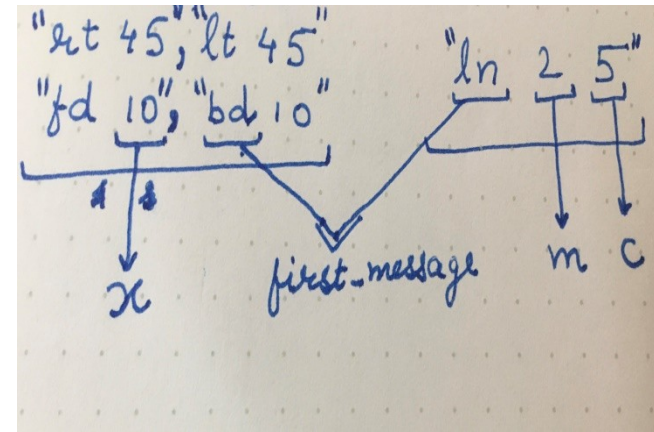 "rt 45", "lt 45"
"fd 10", "bd 10"
"ln 2 5"
x
first_message
m
c